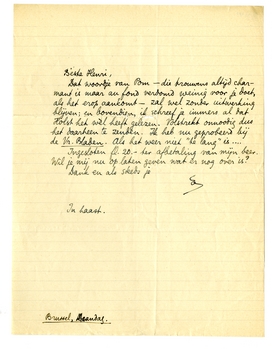 Beste Henri,
Dat woordje van Bm – die trouwens altijd char-
mant is maar au fond verdomd weinig voor je doet,
als het erop aankomt – zal wel zonder uitwerking
blijven; en bovendien, ik schreef je immers al dat
Holst het wel heeft gelezen. Volstrekt onnoodig dus
het daarheen te zenden. Ik heb nu geprobeerd bij
de Vr. Bladen. Als het weer niet "te lang" is....
Ingesloten fl. 20.- der afbetaling van mijn beer.
Wil je mij nu op laten geven wat er nog over is?
Dank en als steeds je
E
In haast.
Brussel, Maandag.